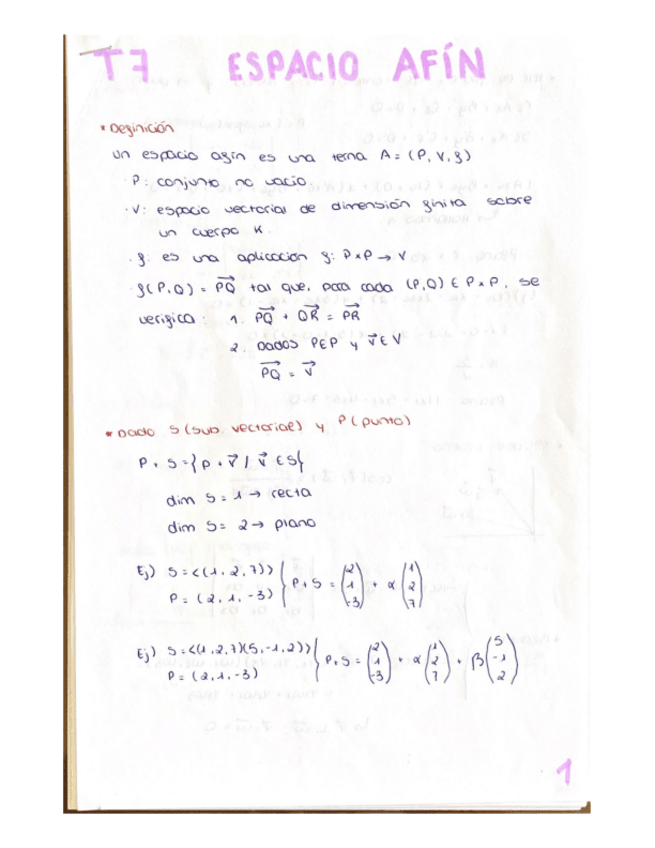 T7 ESPACIO AFÍN
* Definición
un espacio afín es una terna A = (P, V, f)
· P: conjunto no vacío
· V: espacio vectorial de dimensión finita sobre
un cuerpo K.
· f: es una aplicación f: P x P → V
· f(P,Q) = PQ⃗ tal que, para cada (P,Q) ∈ P x P, se
verifica: 1. PQ⃗ + QR⃗ = PR⃗
2. Dados P∈P y v⃗ ∈ V
PQ⃗ = v⃗
* Dado S (sub vectorial) y P (punto)
P + S = {P + v⃗ / v⃗ ∈ S}
dim S = 1 → recta
dim S = 2 → plano
Ej) S = <(1, 2, 7)>
P = (2, 1, -3)
P + S = (2 1 -3) + α (1 2 7)
Ej) S = <(1, 2, 7)(5, -1, 2)>
P = (2, 1, -3)
P + S = (2 1 -3) + α (1 2 7) + β (5 -1 2)
1